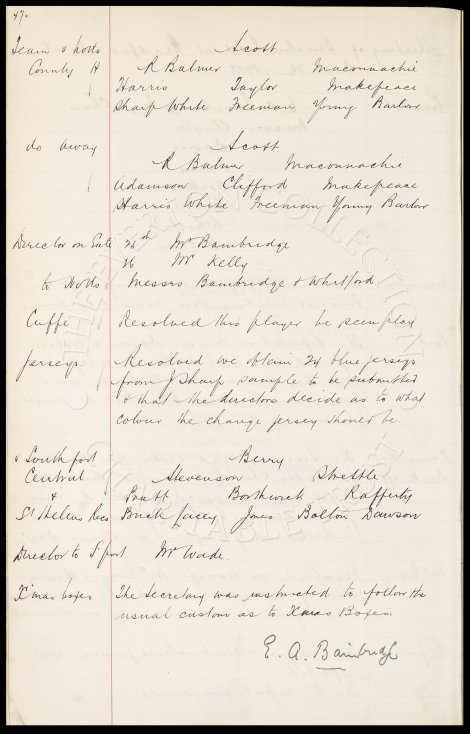 47.
Team v Notts Scott
County H R Balmer Maconnachie
Harris Taylor Makepeace
Sharp White Freeman Young Barlow
do away Scott
R Balmer Maconnachie
Adamson Clifford Makepeace
Harris White Freeman Young Barlow
Director on Gate 26th Mr Bainbridge
26 Mr Kelly
to Notts Messrs Bainbridge & Whitford
Cuffe Resolved this player be seen play
Jerseys Resolved we obtain 24 blue jerseys
from J Sharp sample to be submitted
& that the directors decide as to what
colour the change jersey should be
v Southport Berry
Central Stevenson Strettle
& Pratt Borthwick Rafferty
St Helens Recs Buck Lacey Jones Bolton Dawson
Director to S'port Mr Wade.
X'mas boxes The Secretary was instructed to follow the
usual custom as to Xmas Boxes
E. A. Bainbridge
THE EVERTON COLLECTION